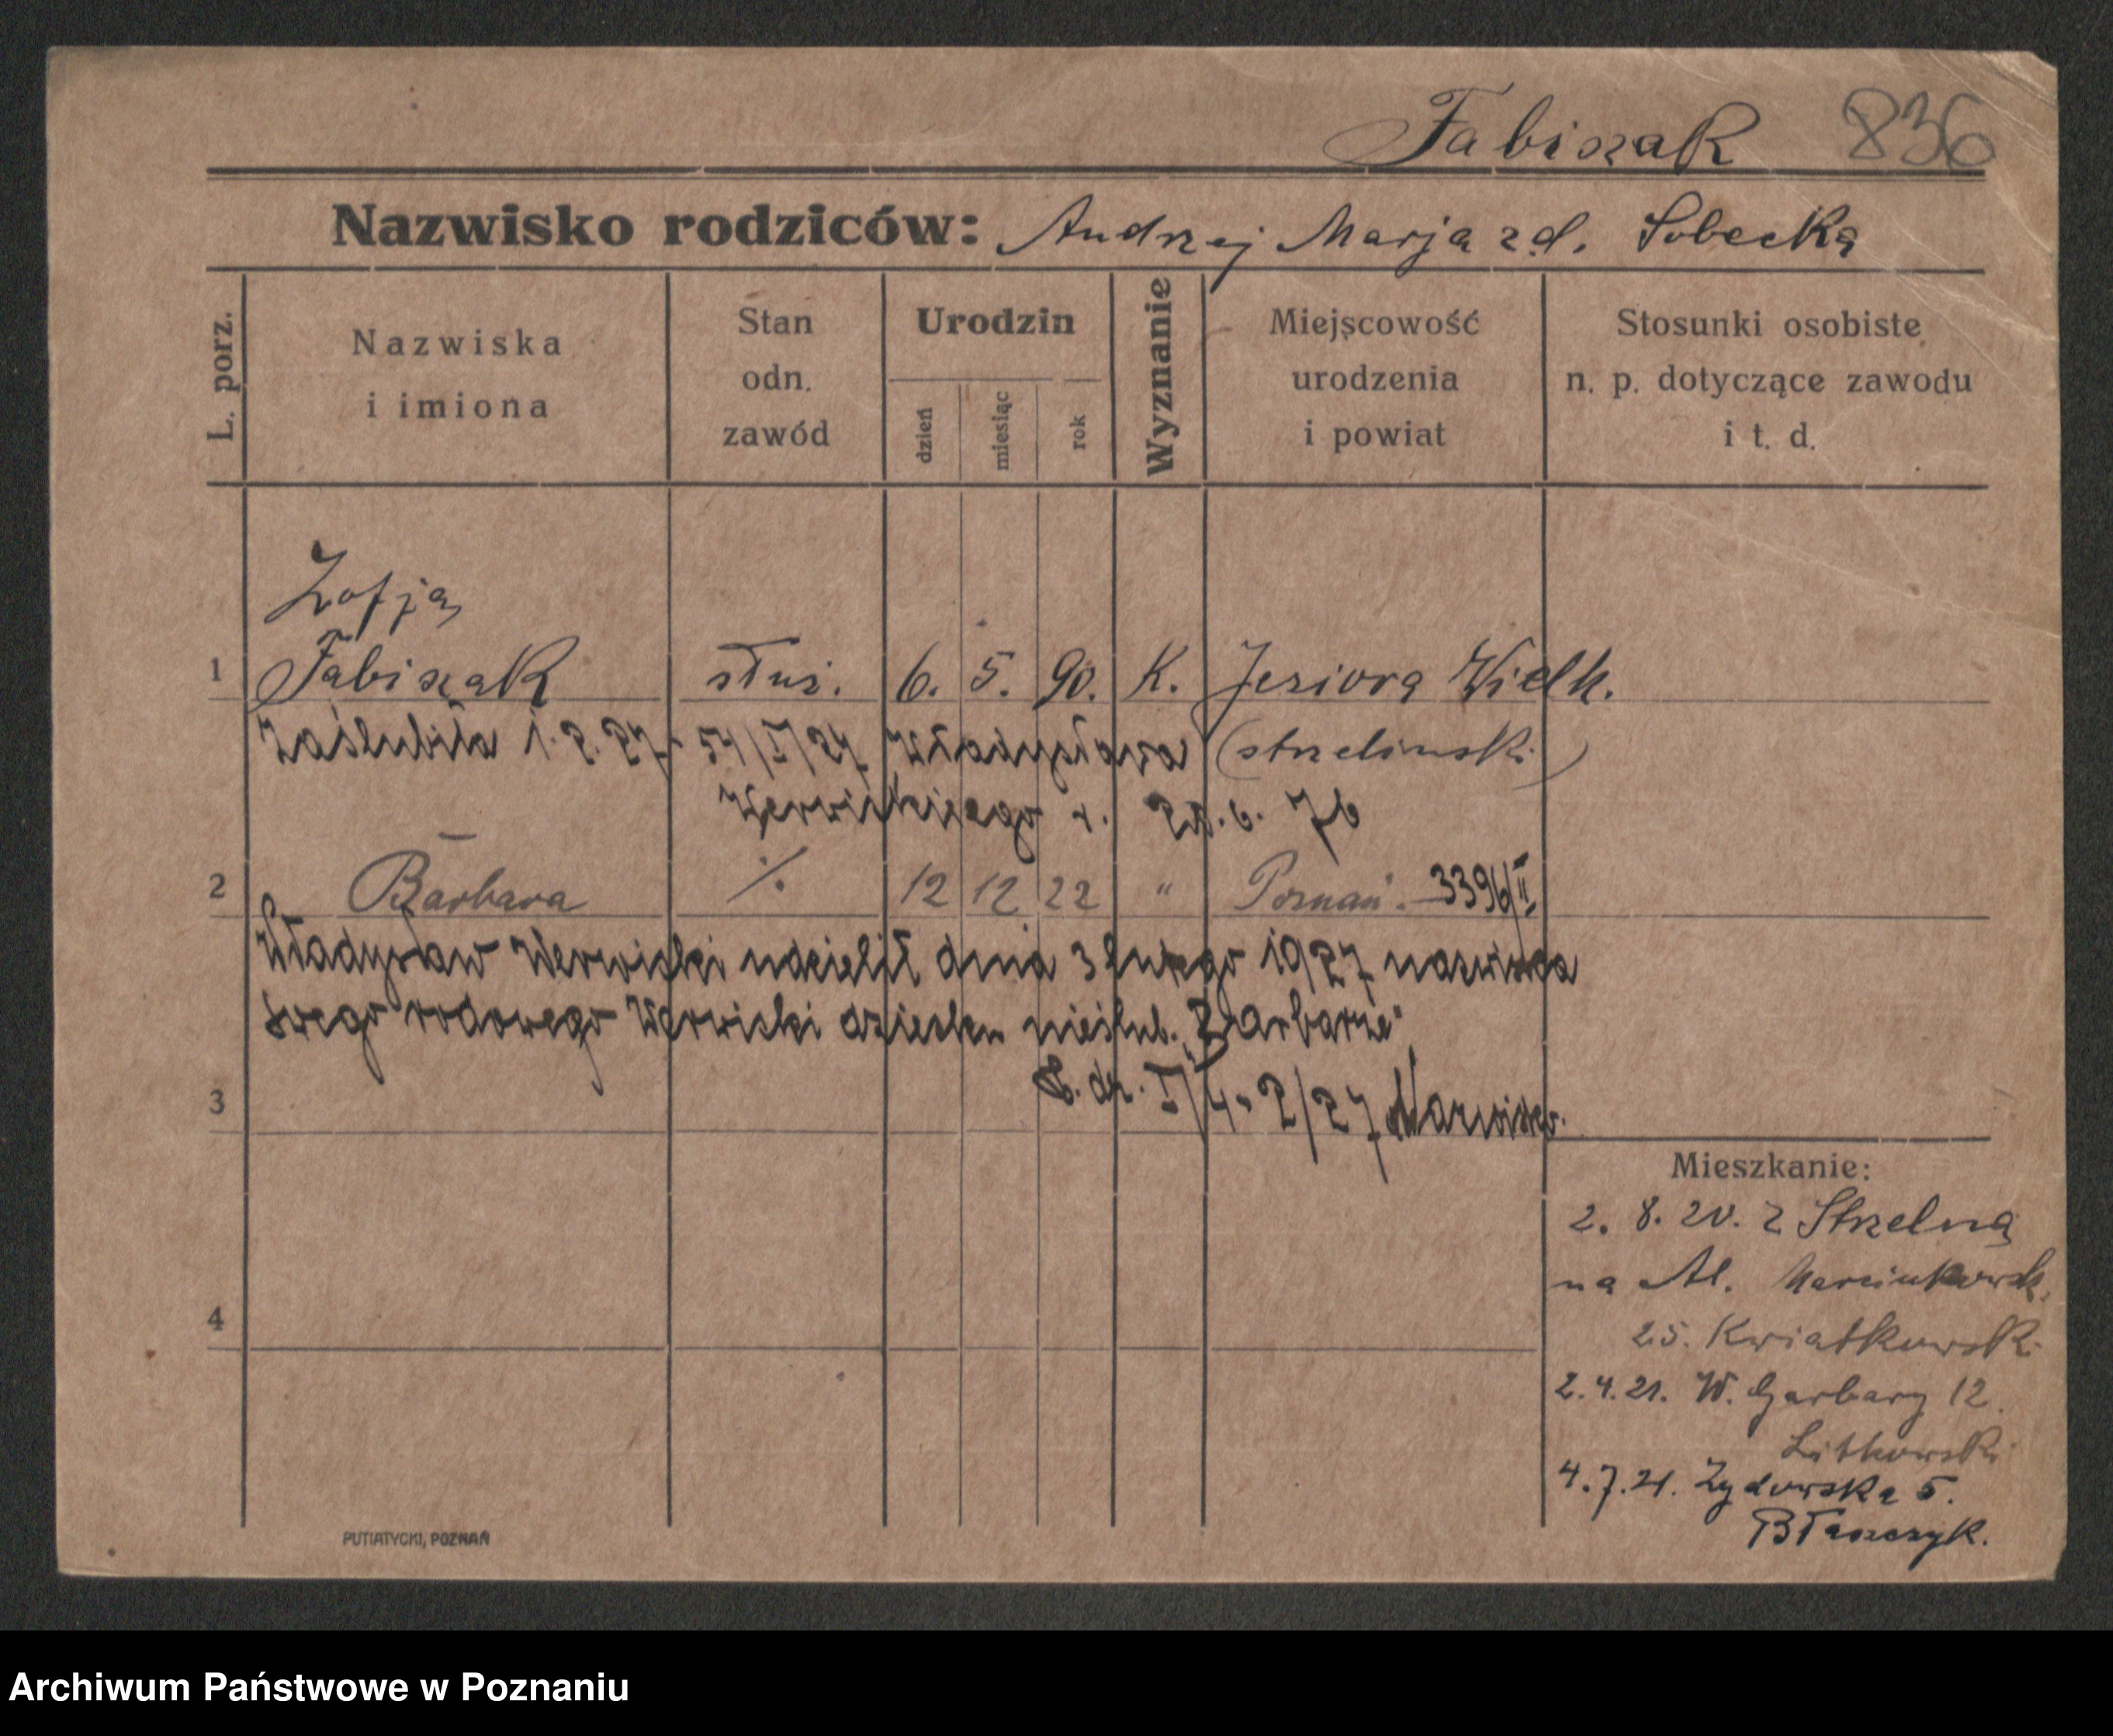 Fabiszak 836
Nazwisko rodziców: Andrzej Marja zd. Sobecka
L. porz.
Nazwiska
i imiona
Stan
odn.
zawód
Urodzin
dzień
miesiąc
rok
Wyznanie
Miejscowość
urodzenia
i powiat
Stosunki osobiste
n. p. dotyczące zawodu
i t. d.
Zofja
1 Fabiszak służ. 6. 5. 90. K. Jeziora Wielk.
Zaślubiła 1.2.27. 54/I/27 Władysława (strzelinski)
Werwickiego r. 6. 76
2 Barbara ·/. 12 12 22 " Poznań. 3396/II.
Władysław Werwicki udzielił dnia 3 lutego 1927 nazwiska
swego rodowego Werwicki dziecku nieślub. „Barbarze"
3 /27
4
Mieszkanie:
2. 8. 20. z Strzelna
na Al. Marcinkowsk.
25. Kwiatkowski
2.4.21. W. Garbary 12.
Litkowski
4.7.21. Zydowska 5.
Błaszczyk.
PUTIATYCKI, POZNAŃ
Archiwum Państwowe w Poznaniu